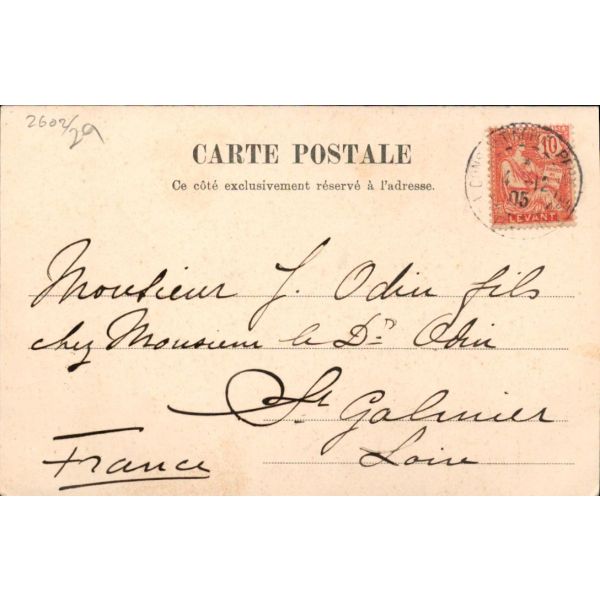 2602/29
CARTE POSTALE
Ce côté exclusivement réservé à l'adresse.
10
05
LEVANT
Monsieur J. Odin fils
chez Monsieur le Dr Odin
St Galmier
France
Loire